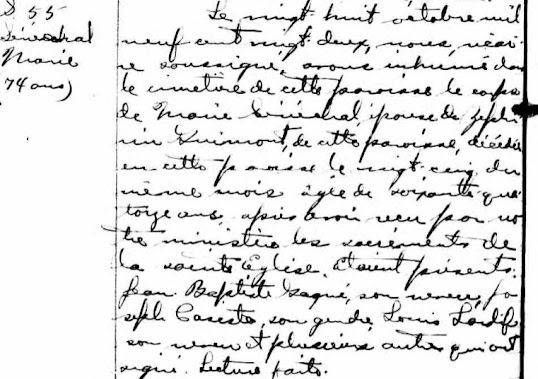 S 55
Sénéchal
Marie
74 ans)
Le vingt huit octobre mil
neuf cent vingt-deux, nous, vicai-
re soussigné, avons inhumé dans
le cimetière de cette paroisse le corps
de Marie Sénéchal, épouse de Zéphi-
rin Guimont, de cette paroisse, décédée
en cette paroisse le vingt-cinq du
même mois âgée de soixante-qua-
torze ans, après avoir reçu par no-
tre ministère les sacrements de
la sainte Église. Étaient présents:
Jean Baptiste Gagné, son neveu, Jo-
seph Caseste, son gendre, Louis
son neveu et plusieurs autres qui ont
signé. Lecture faite.